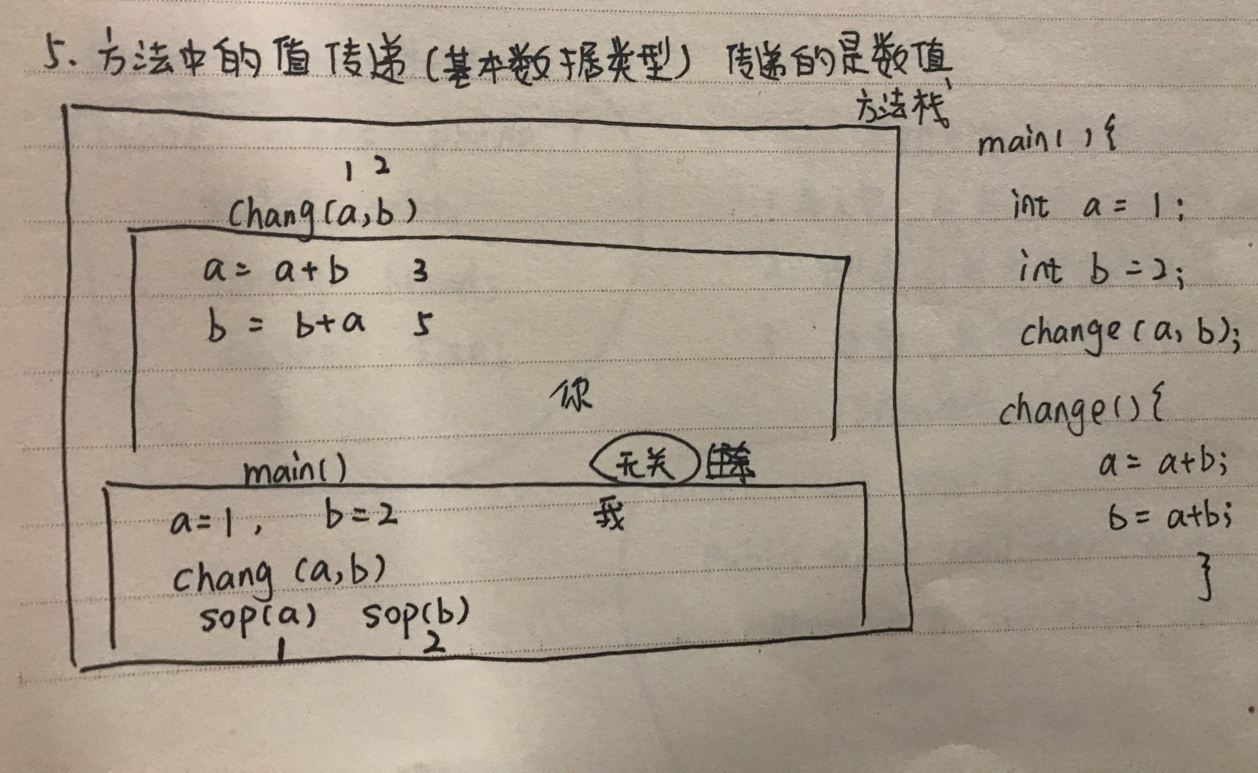 5. 方法中的值传递(基本数据类型) 传递的是数值
方法栈
1 2
chang(a,b)
a = a+b 3
b = b+a 5
你
main()
无关
a=1, b=2
我
chang (a,b)
sop(a) sop(b)
1 2
main(){
int a = 1;
int b = 2;
change(a, b);
change(){
a = a+b;
b = a+b;
}